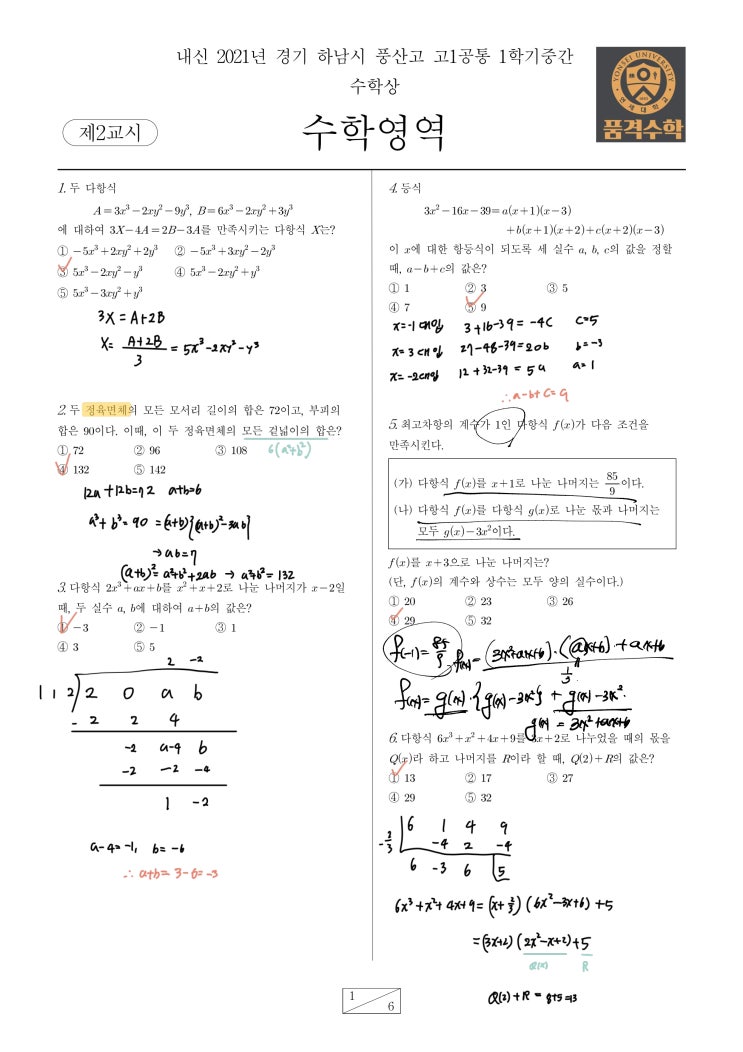 내신 2021년 경기 하남시 풍산고 고1공통 1학기중간
수학상
제2교시
수학영역
YONSEI UNIVERSITY
연세대학교
품격수학
1. 두 다항식
A=3x³-2xy²-9y³, B=6x³-2xy²+3y³
에 대하여 3X-4A=2B-3A를 만족시키는 다항식 X는?
① -5x³+2xy²+2y³ ② -5x³+3xy²-2y³
③ 5x³-2xy²-y³ ④ 5x³-2xy²+y³
⑤ 5x³-3xy²+y³
3X = A+2B
X= (A+2B)/3 = 5x³-2xy²-y³
2. 두 정육면체의 모든 모서리 길이의 합은 72이고, 부피의
합은 90이다. 이때, 이 두 정육면체의 모든 겉넓이의 합은?
① 72 ② 96 ③ 108
6(a²+b²)
④ 132 ⑤ 142
12a+12b=72 a+b=6
a³+b³=90 =(a+b){(a+b)²-3ab}
→ab=7
(a+b)²=a²+b²+2ab → a²+b²=132
3. 다항식 2x³+ax+b를 x²+x+2로 나눈 나머지가 x-2일
때, 두 실수 a, b에 대하여 a+b의 값은?
① -3 ② -1 ③ 1
④ 3 ⑤ 5
2 -2
1 1 2 2 0 a b
- 2 2 4
-2 a-4 b
-2 -2 -4
1 -2
a-4=-1, b=-6
∴ a+b= 3-6=-3
4. 등식
3x²-16x-39=a(x+1)(x-3)
+b(x+1)(x+2)+c(x+2)(x-3)
이 x에 대한 항등식이 되도록 세 실수 a, b, c의 값을 정할
때, a-b+c의 값은?
① 1 ② 3 ③ 5
④ 7 ⑤ 9
x=-1 대입 3+16-39=-4c c=5
x=3 대입 27-48-39=20b b=-3
x=-2대입 12+32-39=5a a=1
∴a-b+c=9
5. 최고차항의 계수가 1인 다항식 f(x)가 다음 조건을
만족시킨다.
(가) 다항식 f(x)를 x+1로 나눈 나머지는 85/9이다.
(나) 다항식 f(x)를 다항식 g(x)로 나눈 몫과 나머지는
모두 g(x)-3x²이다.
f(x)를 x+3으로 나눈 나머지는?
(단, f(x)의 계수와 상수는 모두 양의 실수이다.)
① 20 ② 23 ③ 26
④ 29 ⑤ 32
f(-1)=85/9 f(x)=(3x²+ax+b)·(ax+b)+ax+b
1/3
f(x)=g(x)·{g(x)-3x²}+g(x)-3x².
g(x)=3x²+ax+b
6. 다항식 6x³+x²+4x+9를 3x+2로 나누었을 때의 몫을
Q(x)라 하고 나머지를 R이라 할 때, Q(2)+R의 값은?
① 13 ② 17 ③ 27
④ 29 ⑤ 32
-2/3 6 1 4 9
-4 2 -4
6 -3 6 5
6x³+x²+4x+9=(x+2/3)(6x²-3x+6)+5
=(3x+2)(2x²-x+2)+5
Q(x) R
Q(2)+R = 8+5=13
1
6